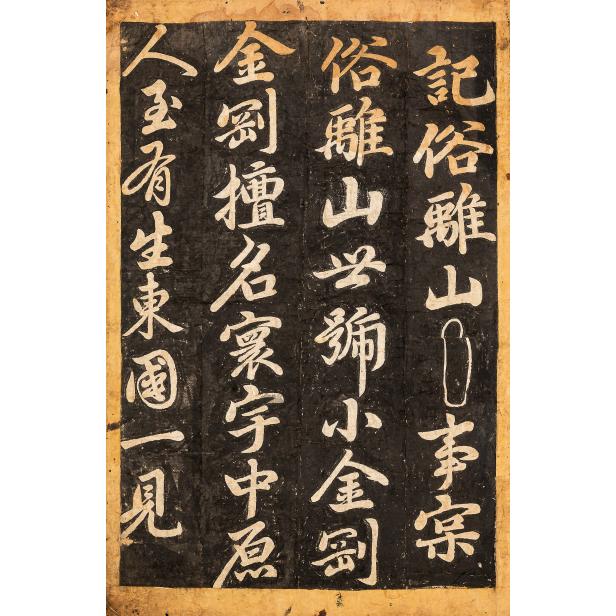 記俗離山事宲
俗離山世號小金剛
金剛擅名寰宇中原
人至有生東國一見